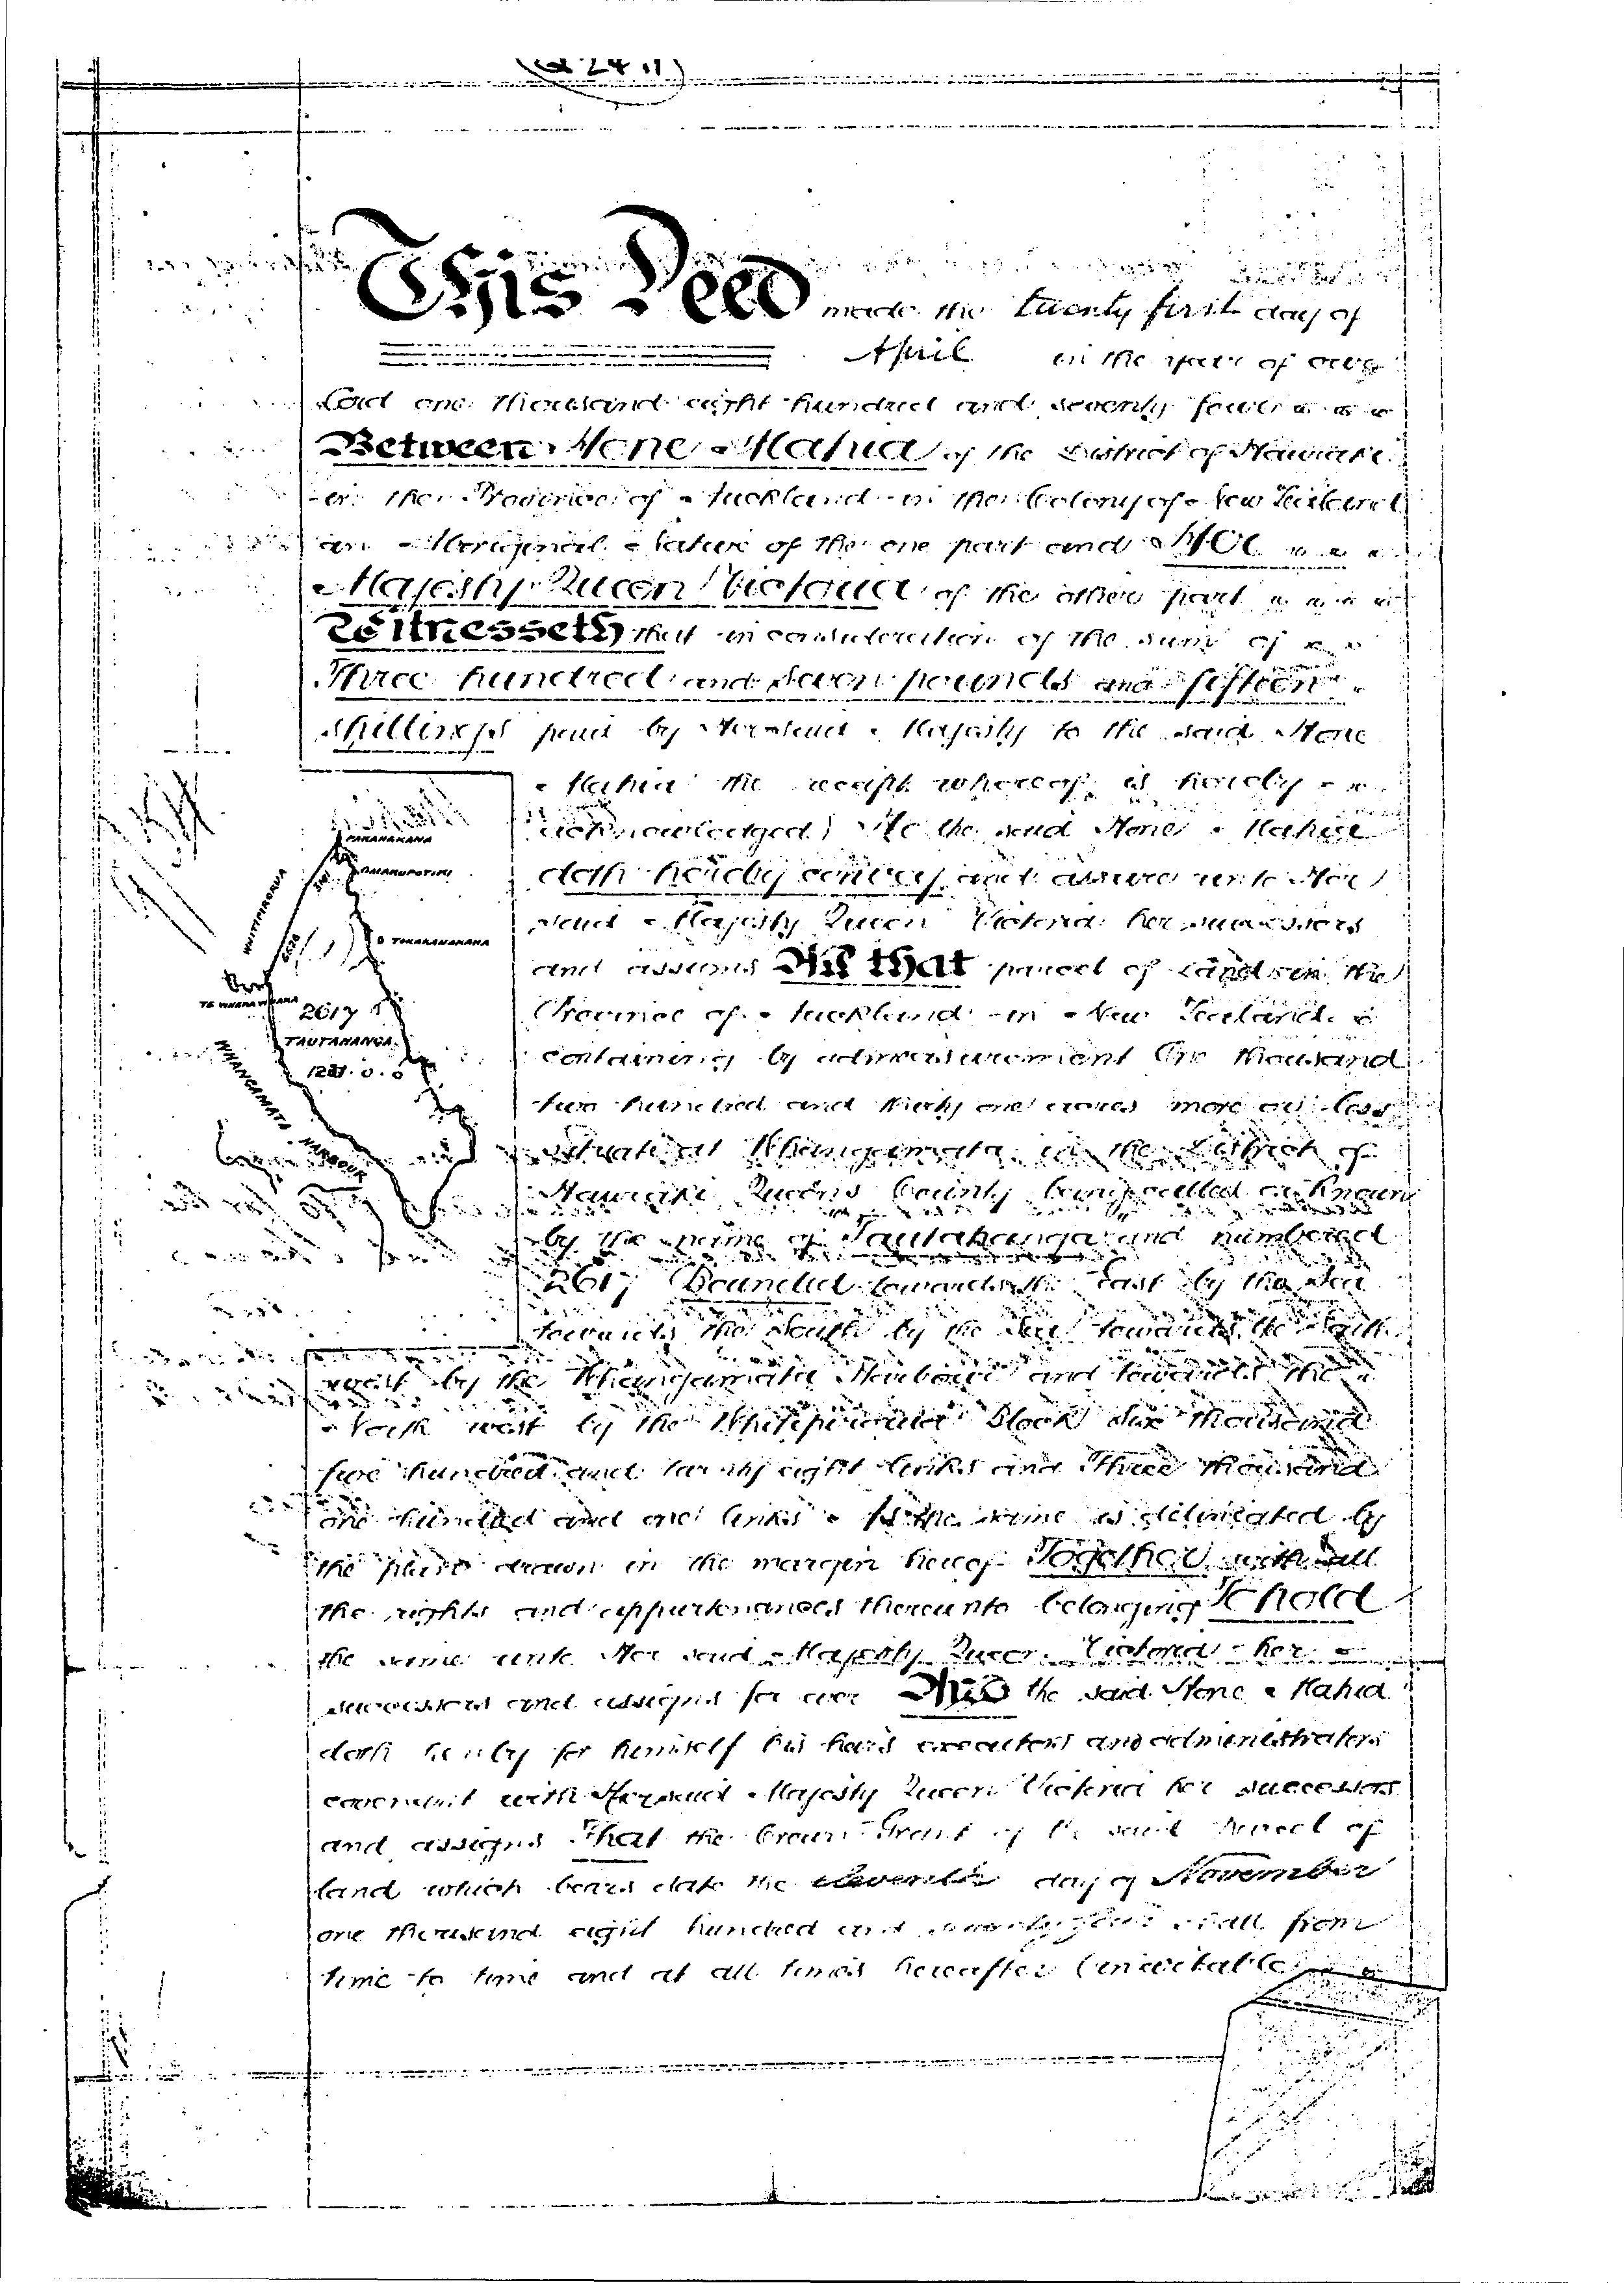 This Deed made the twenty first day of
April in the year of our
Lord one thousand eight hundred and seventy four
Between Hone Mahia of the District of Hauraki
in the Province of Auckland in the Colony of New Zealand
an Aboriginal Native of the one part and Her
Majesty Queen Victoria of the other part
Witnesseth that in consideration of the sum of
Three hundred and seven pounds and fifteen
shillings paid by Her said Majesty to the said Hone
Mahia the receipt whereof is hereby
acknowledged) He the said Hone Mahia
doth hereby convey and assure unto Her
said Majesty Queen Victoria her successors
and assigns All that parcel of Land in the
Province of Auckland in New Zealand
containing by admeasurement One thousand
two hundred and thirty one acres more or less
situate at Whangamata in the District of
Hauraki Queens County being called or known
by the name of Tautahanga and numbered
2617 Bounded towards the East by the Sea
towards the South by the Sea towards the South
west by the Whangamata Harbour and towards the
North west by the Whitipirorua Block Six thousand
five hundred and twenty eight links and Three thousand
one hundred and one links As the same is delineated by
the plan drawn in the margin hereof Together with all
the rights and appurtenances thereunto belonging To hold
the same unto Her said Majesty Queen Victoria her
successors and assigns for ever And the said Hone Mahia
doth hereby for himself his heirs executors and administrators
covenant with Her said Majesty Queen Victoria her successors
and assigns That the Crown Grant of the said parcel of
land which bears date the eleventh day of November
one thousand eight hundred and shall from
time to time and at all times hereafter (inevitable
PARANAKANA
WHITIPIRORUA
6528
TOKAKAHAKAHA
TE WHAREWHARA
2617
TAUTAHANGA
1231. 0. 0
WHANGAMATA HARBOUR